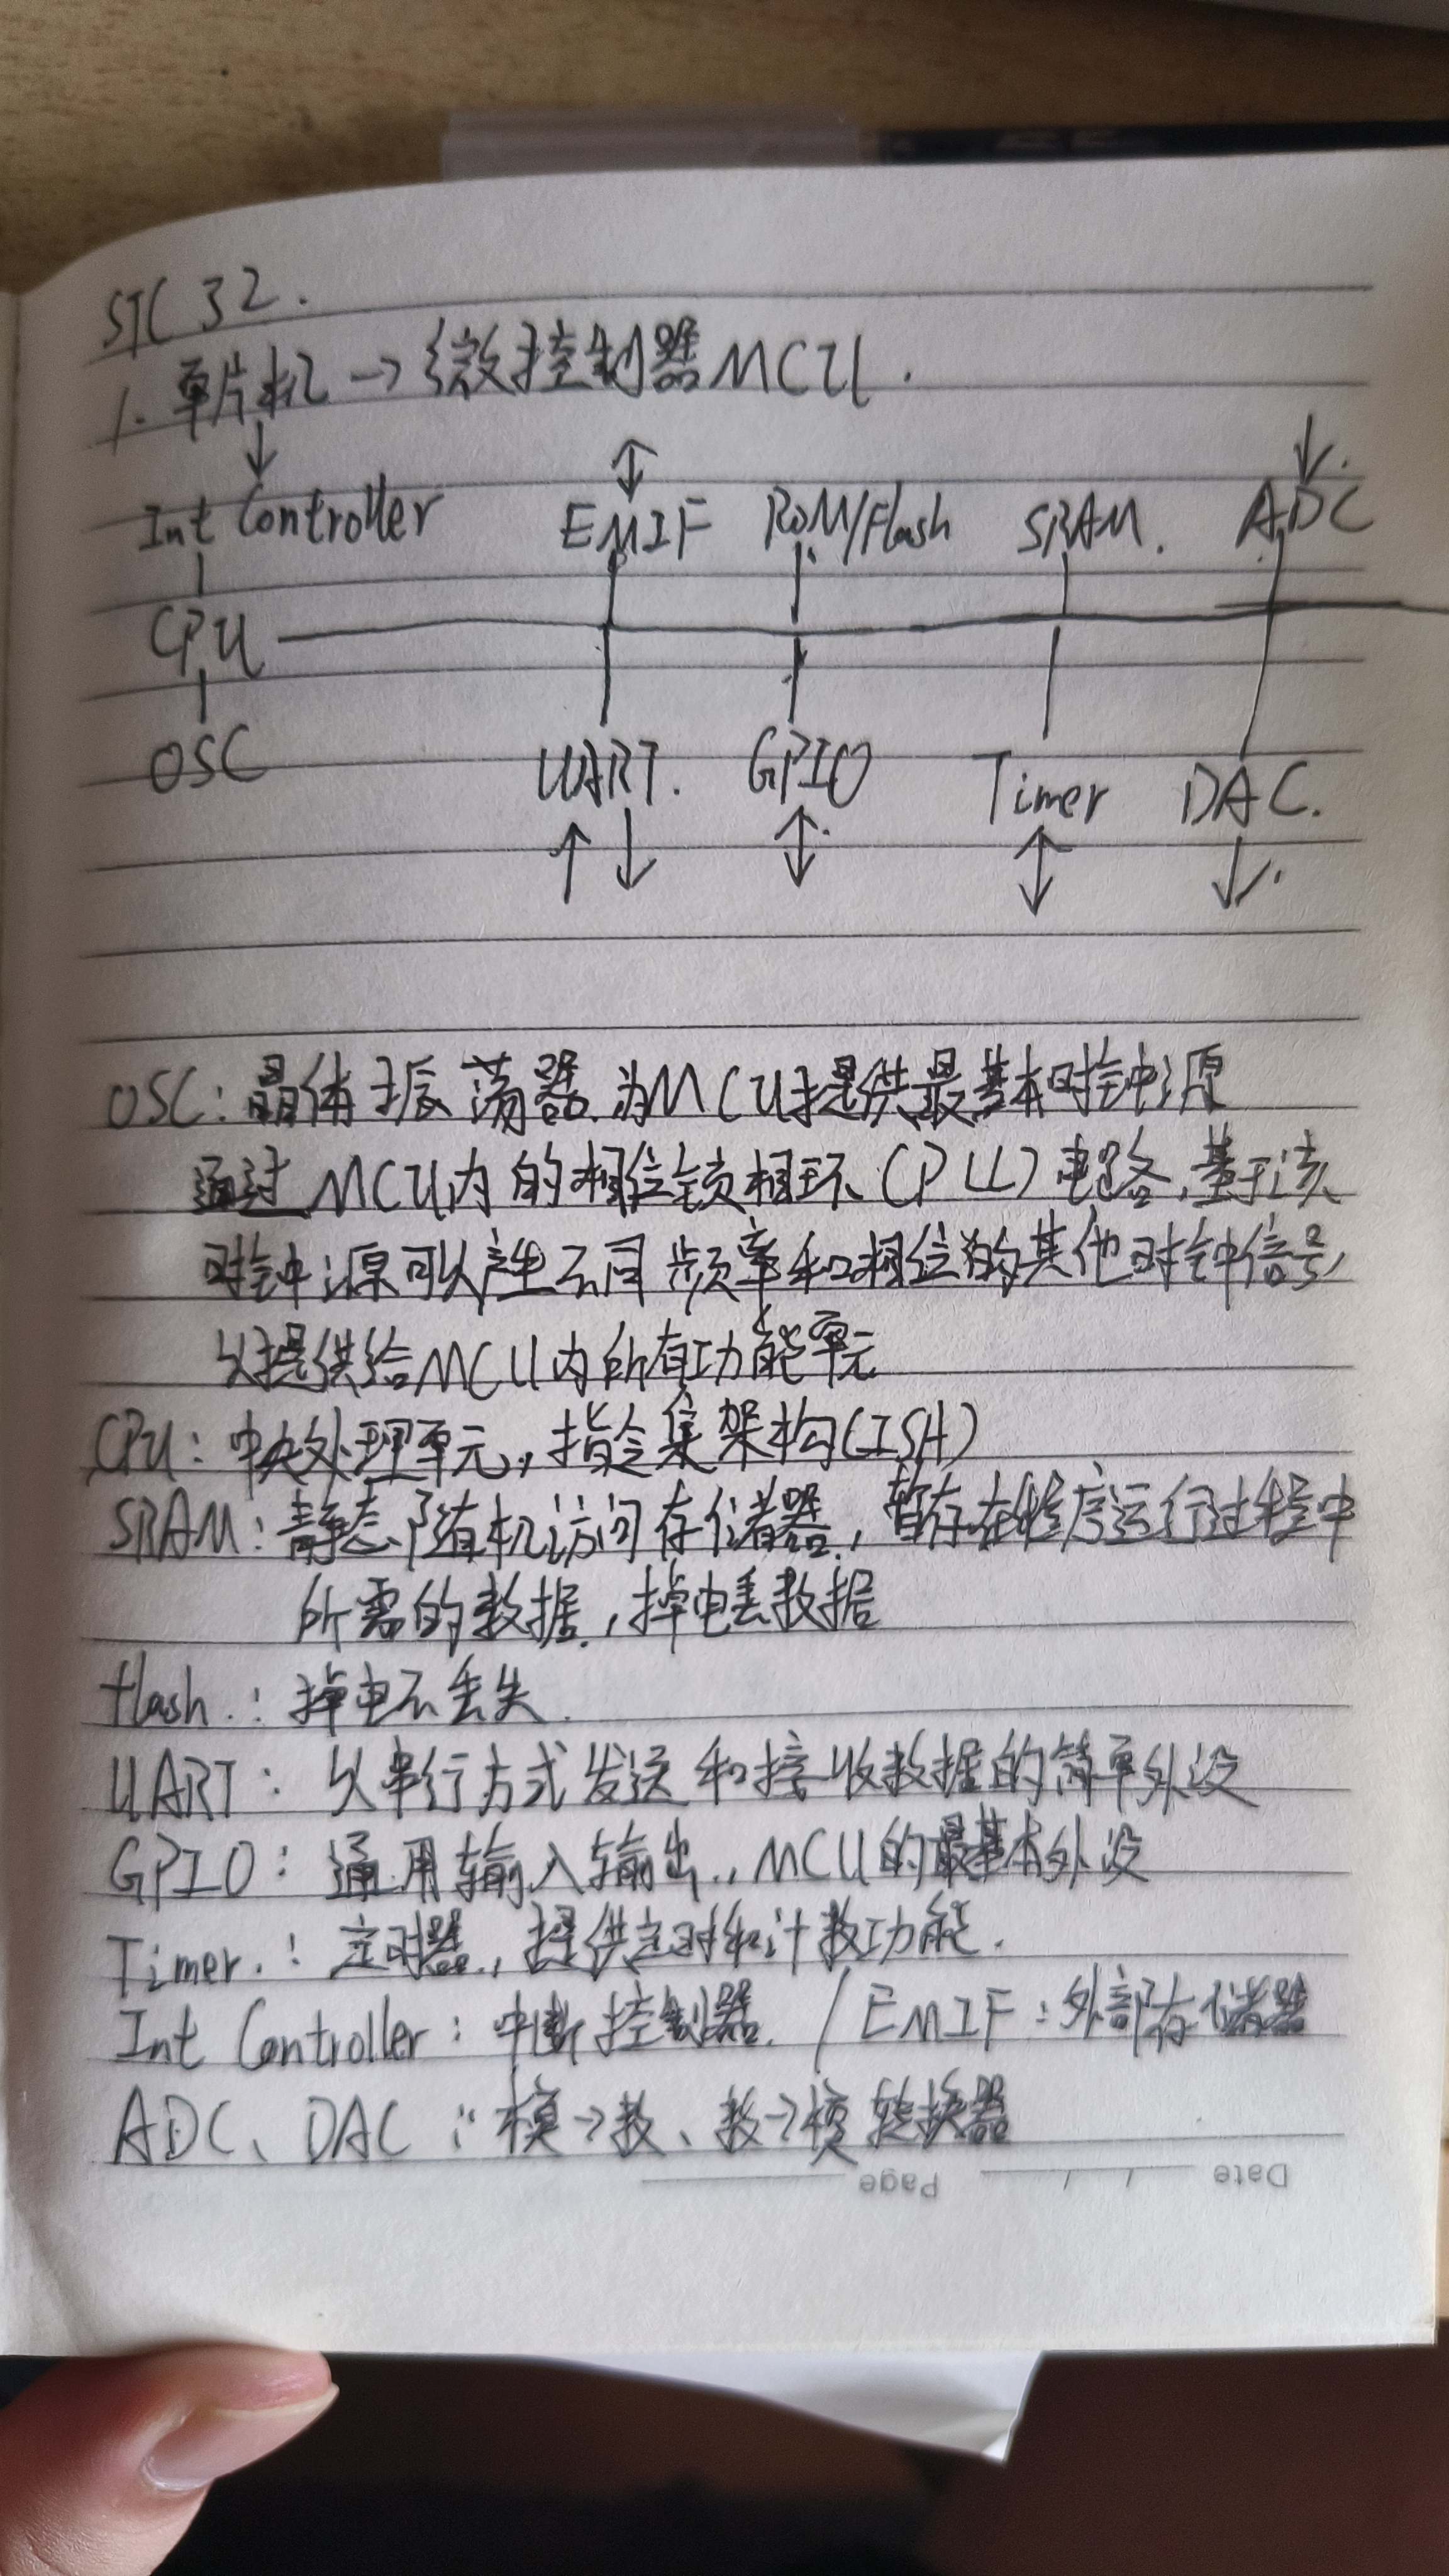 STC 32.
1. 单片机 → 微控制器 MCU.
Int Controller EMIF ROM/Flash SRAM. ADC
CPU
OSC UART. GPIO Timer DAC.
OSC: 晶体振荡器.为MCU提供最基本时钟源
通过MCU内的相位锁相环(PLL)电路,基于该
时钟源可以产生不同频率和相位的其他时钟信号,
以提供给MCU内所有功能单元
CPU: 中央处理单元,指令集架构(ISA)
SRAM: 静态随机访问存储器,暂存在程序运行过程中
所需的数据,掉电丢数据
flash.: 掉电不丢失.
UART: 以串行方式发送和接收数据的简单外设
GPIO: 通用输入输出.,MCU的最基本外设
Timer.: 定时器.,提供定时和计数功能.
Int Controller: 中断控制器. / EMIF: 外部存储器
ADC、DAC: 模→数、数→模转换器
Date / / Page